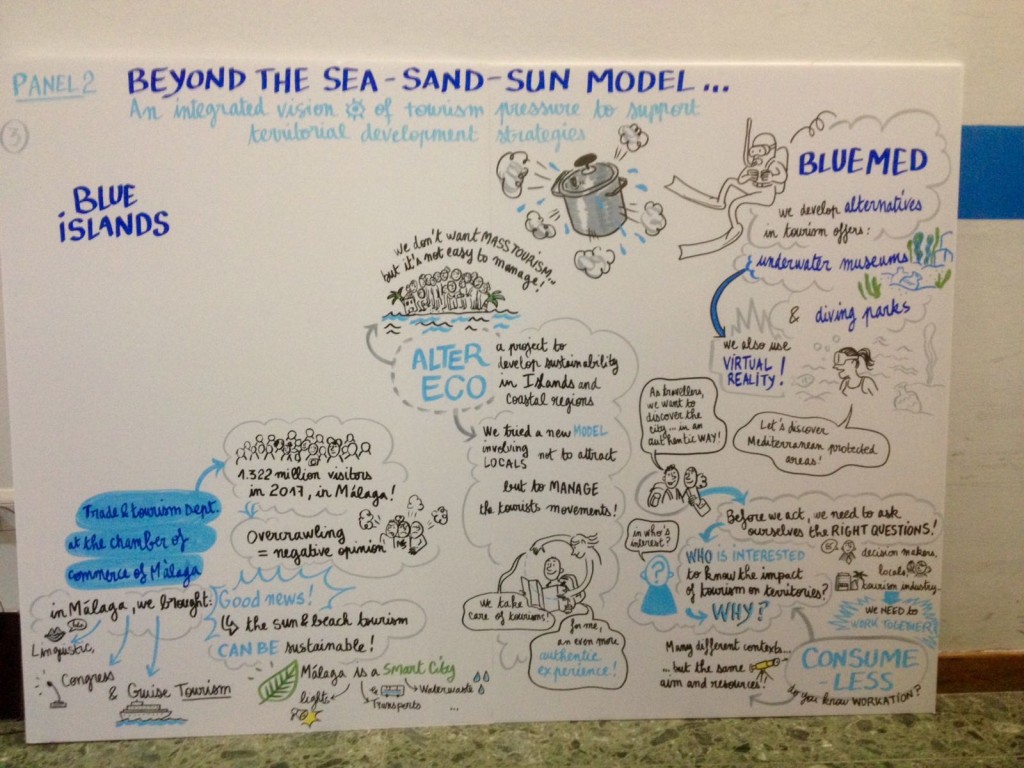 PANEL 2
BEYOND THE SEA-SAND-SUN MODEL...
An integrated vision of tourism pressure to support
territorial development strategies
3
BLUE
ISLANDS
we don't want MASS TOURISM...
but it's not easy to manage!
ALTER
ECO
a project to
develop sustainability
in Islands and
coastal regions
We tried a new MODEL
involving not to attract
LOCALS
but to MANAGE
the tourists movements!
we take
care of tourions!
for me,
an even more
authentic
experience!
1.322 million visitors
in 2017, in Málaga!
Trade & tourism Dept.
at the chamber of
commerce of Málaga
Overcrawling
= negative opinion
in Málaga, we brought:
Linguistic,
Congress
& Cruise Tourism
Good news!
the sun & beach tourism
CAN BE sustainable!
Málaga is a Smart City
light
Transports
Waterwaste
...
BLUEMED
we develop alternatives
in tourism offers:
underwater museums
& diving parks
we also use
VIRTUAL
REALITY!
Let's discover
Mediterranean protected
areas!
As travellers,
we want to
discover the
city... in an
authentic WAY!
Before we act, we need to ask
ourselves the RIGHT QUESTIONS!
in who's
interest?
?
WHO IS INTERESTED
to know the impact
of tourism on territories?
WHY?
decision makers,
locals,
tourism industry
WE NEED TO
WORK TOGETHER
Many different contexts...
...but the same
aim and resources!
CONSUME
-LESS
do you know WORKATION?